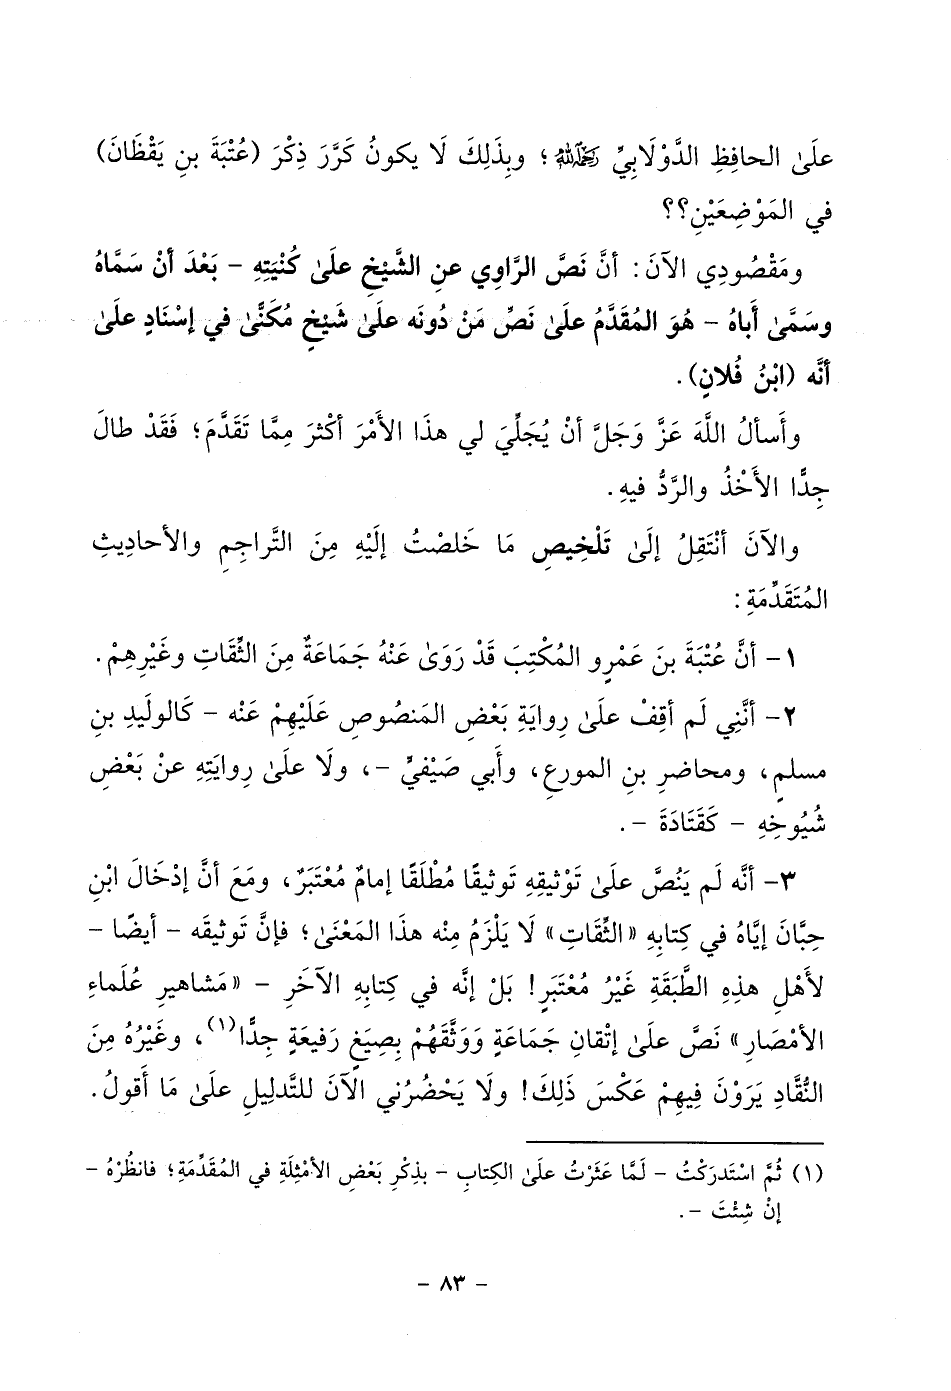 علَىٰ الحافِظِ الدَّوْلَابِيِّ رَحِمَهُ اللَّهُ ؛ وبِذَلِكَ لَا يكونُ كَرَّرَ ذِكْرَ (عُتْبَةَ بنِ يَقْظَانَ)
في المَوْضِعَيْنِ؟؟
ومَقْصُودِي الآنَ: أنَّ نَصَّ الرَّاوِي عنِ الشَّيْخِ علَىٰ كُنْيَتِهِ – بَعْدَ أنْ سَمَّاهُ
وسَمَّىٰ أباهُ – هُوَ المُقَدَّمُ علَىٰ نَصِّ مَنْ دُونَه علَىٰ شَيْخٍ مُكَنًّىٰ في إسْنَادٍ علَىٰ
أنَّه (ابْنُ فُلانٍ).
وأَسألُ اللَّهَ عَزَّ وَجَلَّ أنْ يُجَلِّيَ لي هذَا الأَمْرَ أكْثرَ مِمَّا تَقَدَّمَ؛ فَقَدْ طالَ
جِدًّا الأَخْذُ والرَّدُّ فيهِ.
والآنَ أنْتَقِلُ إلَىٰ تَلْخِيصِ مَا خَلصْتُ إلَيْهِ مِنَ التَّراجِمِ والأحادِيثِ
المُتَقَدِّمَةِ:
١– أنَّ عُتْبَةَ بنَ عَمْرٍو المُكْتِبَ قَدْ رَوَىٰ عَنْهُ جَمَاعَةٌ مِنَ الثِّقَاتِ وغَيْرِهِمْ.
٢– أنَّنِي لَم أقِفْ علَىٰ رِوايَةِ بَعْضِ المَنصُوصِ عَلَيْهِمْ عَنْه – كَالوليدِ بنِ
مسلمٍ، ومحاضرِ بنِ المورعِ، وأبي صَيْفيٍّ –، ولَا علَىٰ رِوايَتِهِ عنْ بَعْضِ
شُيُوخِهِ – كَقَتَادَةَ –.
٣– أنَّه لَم يَنُصَّ علَىٰ تَوْثِيقِهِ تَوثيقًا مُطْلَقًا إمامٌ مُعْتَبَرٌ، ومَعَ أنَّ إدْخَالَ ابْنِ
حِبَّانَ إيَّاهُ في كِتابِهِ «الثِّقَاتِ» لَا يَلْزَمُ مِنْه هذَا المَعْنَىٰ؛ فإنَّ تَوثيقَه – أيضًا –
لأَهْلِ هذِهِ الطَّبَقَةِ غَيْرُ مُعْتَبَرٍ! بَلْ إنَّه في كِتابِهِ الآخَرِ – «مَشاهيرِ عُلَماءِ
الأمْصَارِ» نَصَّ علَىٰ إتْقانِ جَمَاعَةٍ وَوَثَّقَهُمْ بِصِيَغٍ رَفيعَةٍ جِدًّا(١)، وغَيْرُهُ مِنَ
النُّقَّادِ يَرَوْنَ فِيهِمْ عَكْسَ ذَلِكَ! ولَا يَحْضُرُني الآنَ للتَّدلِيلِ علَىٰ مَا أَقولُ.
(١) ثُمَّ اسْتَدرَكْتُ – لَمَّا عَثَرْتُ علَىٰ الكِتابِ – بذِكْرِ بَعْضِ الأمْثِلَةِ في المُقَدِّمَةِ؛ فانظُرْهُ –
إنْ شِئتَ –.
– ٨٣ –